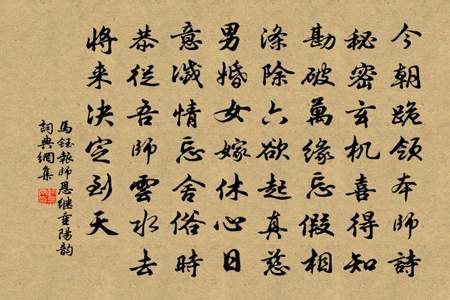 今朝跪領本師詩
秘密玄机喜得知
勘破萬緣忘假相
涤除六欲起真慈
男婚女嫁休心日
意滅情忘舍俗時
恭從吾師雲水去
將来決定到天
馬鈺報師恩继重陽韵
詞典網集